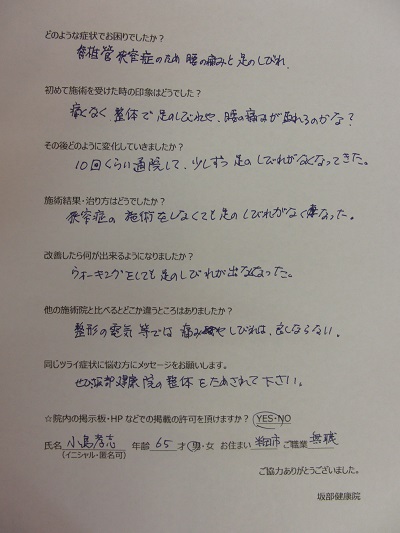 どのような症状でお困りでしたか？
脊椎管狭窄症のため腰の痛みと足のしびれ.
初めて施術を受けた時の印象はどうでした？
痛くなく整体で足のしびれや、腰の痛みが取れるのかな？
その後どのように変化していきましたか？
10回くらい通院して、少しずつ足のしびれがなくなってきた。
施術結果・治り方はどうでしたか？
狭窄症の施術をしなくても足のしびれがなくなった。
改善したら何が出来るようになりましたか？
ウォーキングをしても足のしびれが出なくなった。
他の施術院と比べるとどこか違うところはありましたか？
整形の電気等では痛みやしびれは、良しならない.
同じツライ症状に悩む方にメッセージをお願いします。
ぜひ坂部健康院の整体をためされて下さい。
☆院内の掲示板・HPなどでの掲載の許可を頂けますか？ YES・NO
氏名 小島孝志 年齢 65 才 男・女 お住まい 半田市 ご職業 無職
(イニシャル・匿名可)
ご協力ありがとうございました。
坂部健康院